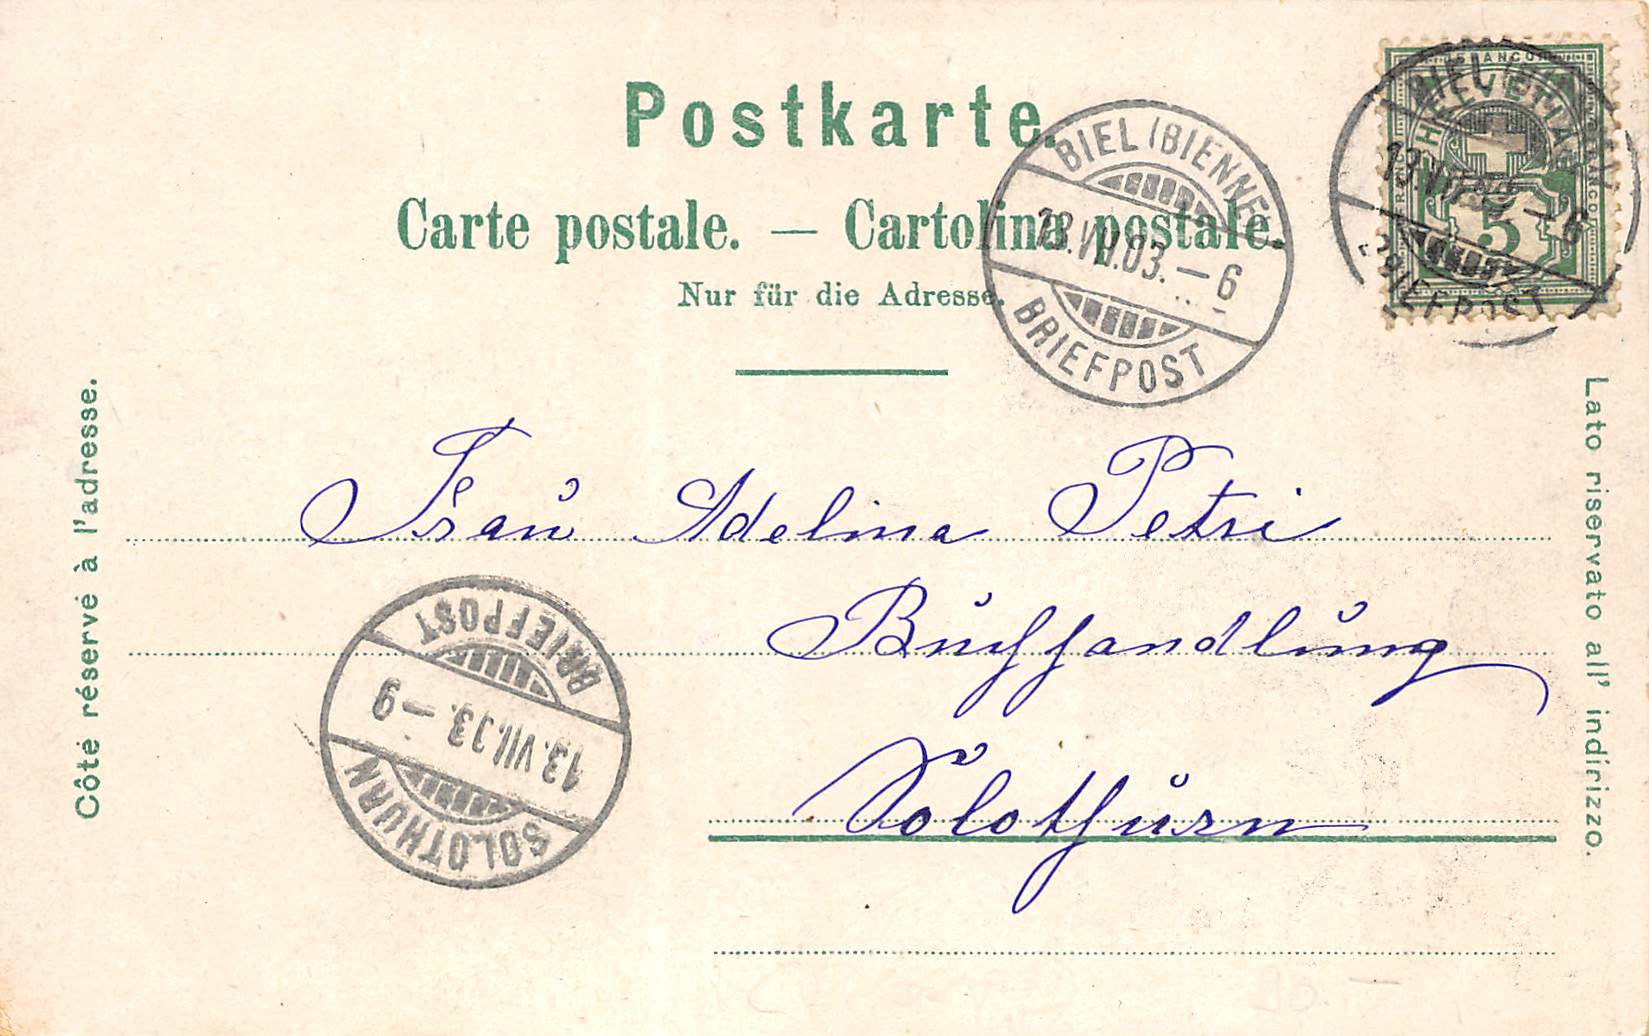 Postkarte.
Carte postale. — Cartolina postale.
Nur für die Adresse.
BIEL (BIENNE)
13.VII.03. — 6
BRIEFPOST
HELVETIA
5
BIEL (BIENNE)
13.VII.03. — 6
BRIEFPOST
Côté réservé à l'adresse.
Lato riservato all' indirizzo.
Frau Adelina Petri
Buchhandlung
Solothurn
SOLOTHURN
13.VII.03. — 9
BRIEFPOST